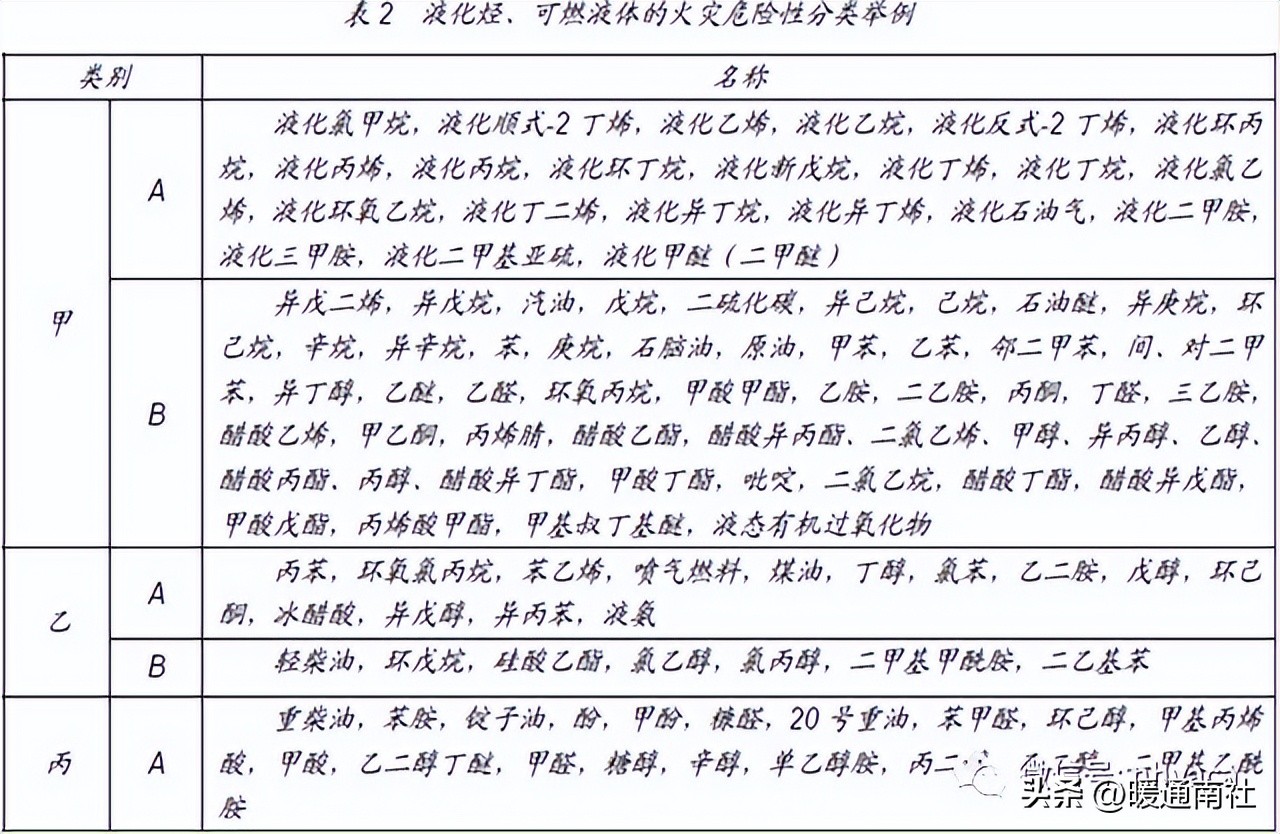 表2 液化烃、可燃液体的火灾危险性分类举例
类别 名称
甲
A
液化氯甲烷，液化顺式-2丁烯，液化乙烯，液化乙烷，液化反式-2丁烯，液化环丙
烷，液化丙烯，液化丙烷，液化环丁烷，液化新戊烷，液化丁烯，液化丁烷，液化氯乙
烯，液化环氧乙烷，液化丁二烯，液化异丁烷，液化异丁烯，液化石油气，液化二甲胺，
液化三甲胺，液化二甲基亚硫，液化甲醚（二甲醚）
B
异戊二烯，异戊烷，汽油，戊烷，二硫化碳，异己烷，己烷，石油醚，异庚烷，环
己烷，辛烷，异辛烷，苯，庚烷，石脑油，原油，甲苯，乙苯，邻二甲苯，间、对二甲
苯，异丁醇，乙醚，乙醛，环氧丙烷，甲酸甲酯，乙胺，二乙胺，丙酮，丁醛，三乙胺，
醋酸乙烯，甲乙酮，丙烯腈，醋酸乙酯，醋酸异丙酯、二氯乙烯、甲醇、异丙醇、乙醇、
醋酸丙酯、丙醇、醋酸异丁酯，甲酸丁酯，吡啶，二氯乙烷，醋酸丁酯，醋酸异戊酯，
甲酸戊酯，丙烯酸甲酯，甲基叔丁基醚，液态有机过氧化物
乙
A
丙苯，环氧氯丙烷，苯乙烯，喷气燃料，煤油，丁醇，氯苯，乙二胺，戊醇，环己
酮，冰醋酸，异戊醇，异丙苯，液氨
B
轻柴油，环戊烷，硅酸乙酯，氯乙醇，氯丙醇，二甲基甲酰胺，二乙基苯
丙
A
重柴油，苯胺，锭子油，酚，甲酚，糠醛，20号重油，苯甲醛，环己醇，甲基丙烯
酸，甲酸，乙二醇丁醚，甲醛，糖醇，辛醇，单乙醇胺，丙二 二甲基乙酰
胺
微信号:
头条 @暖通南社